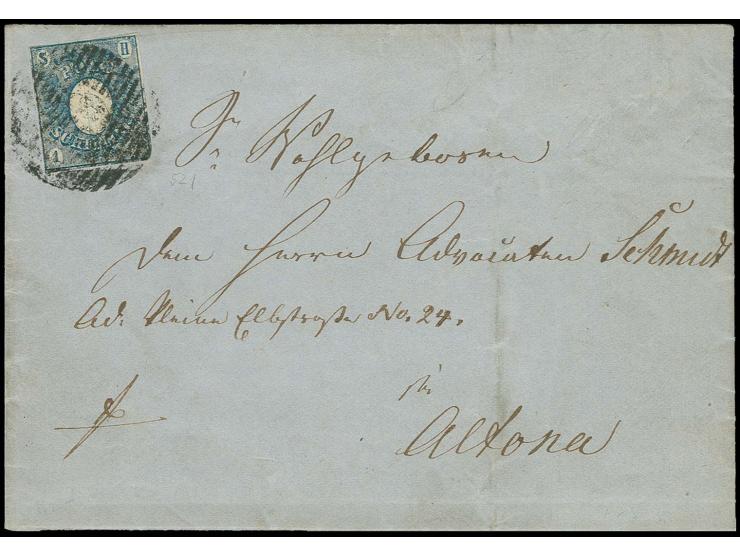 S H
POST
SCHILLING
1
Sr Wohlgeboren
521
Dem Herrn Advocaten Schmidt
Ad: Kleine Elbstraße No. 24.
in
Altona